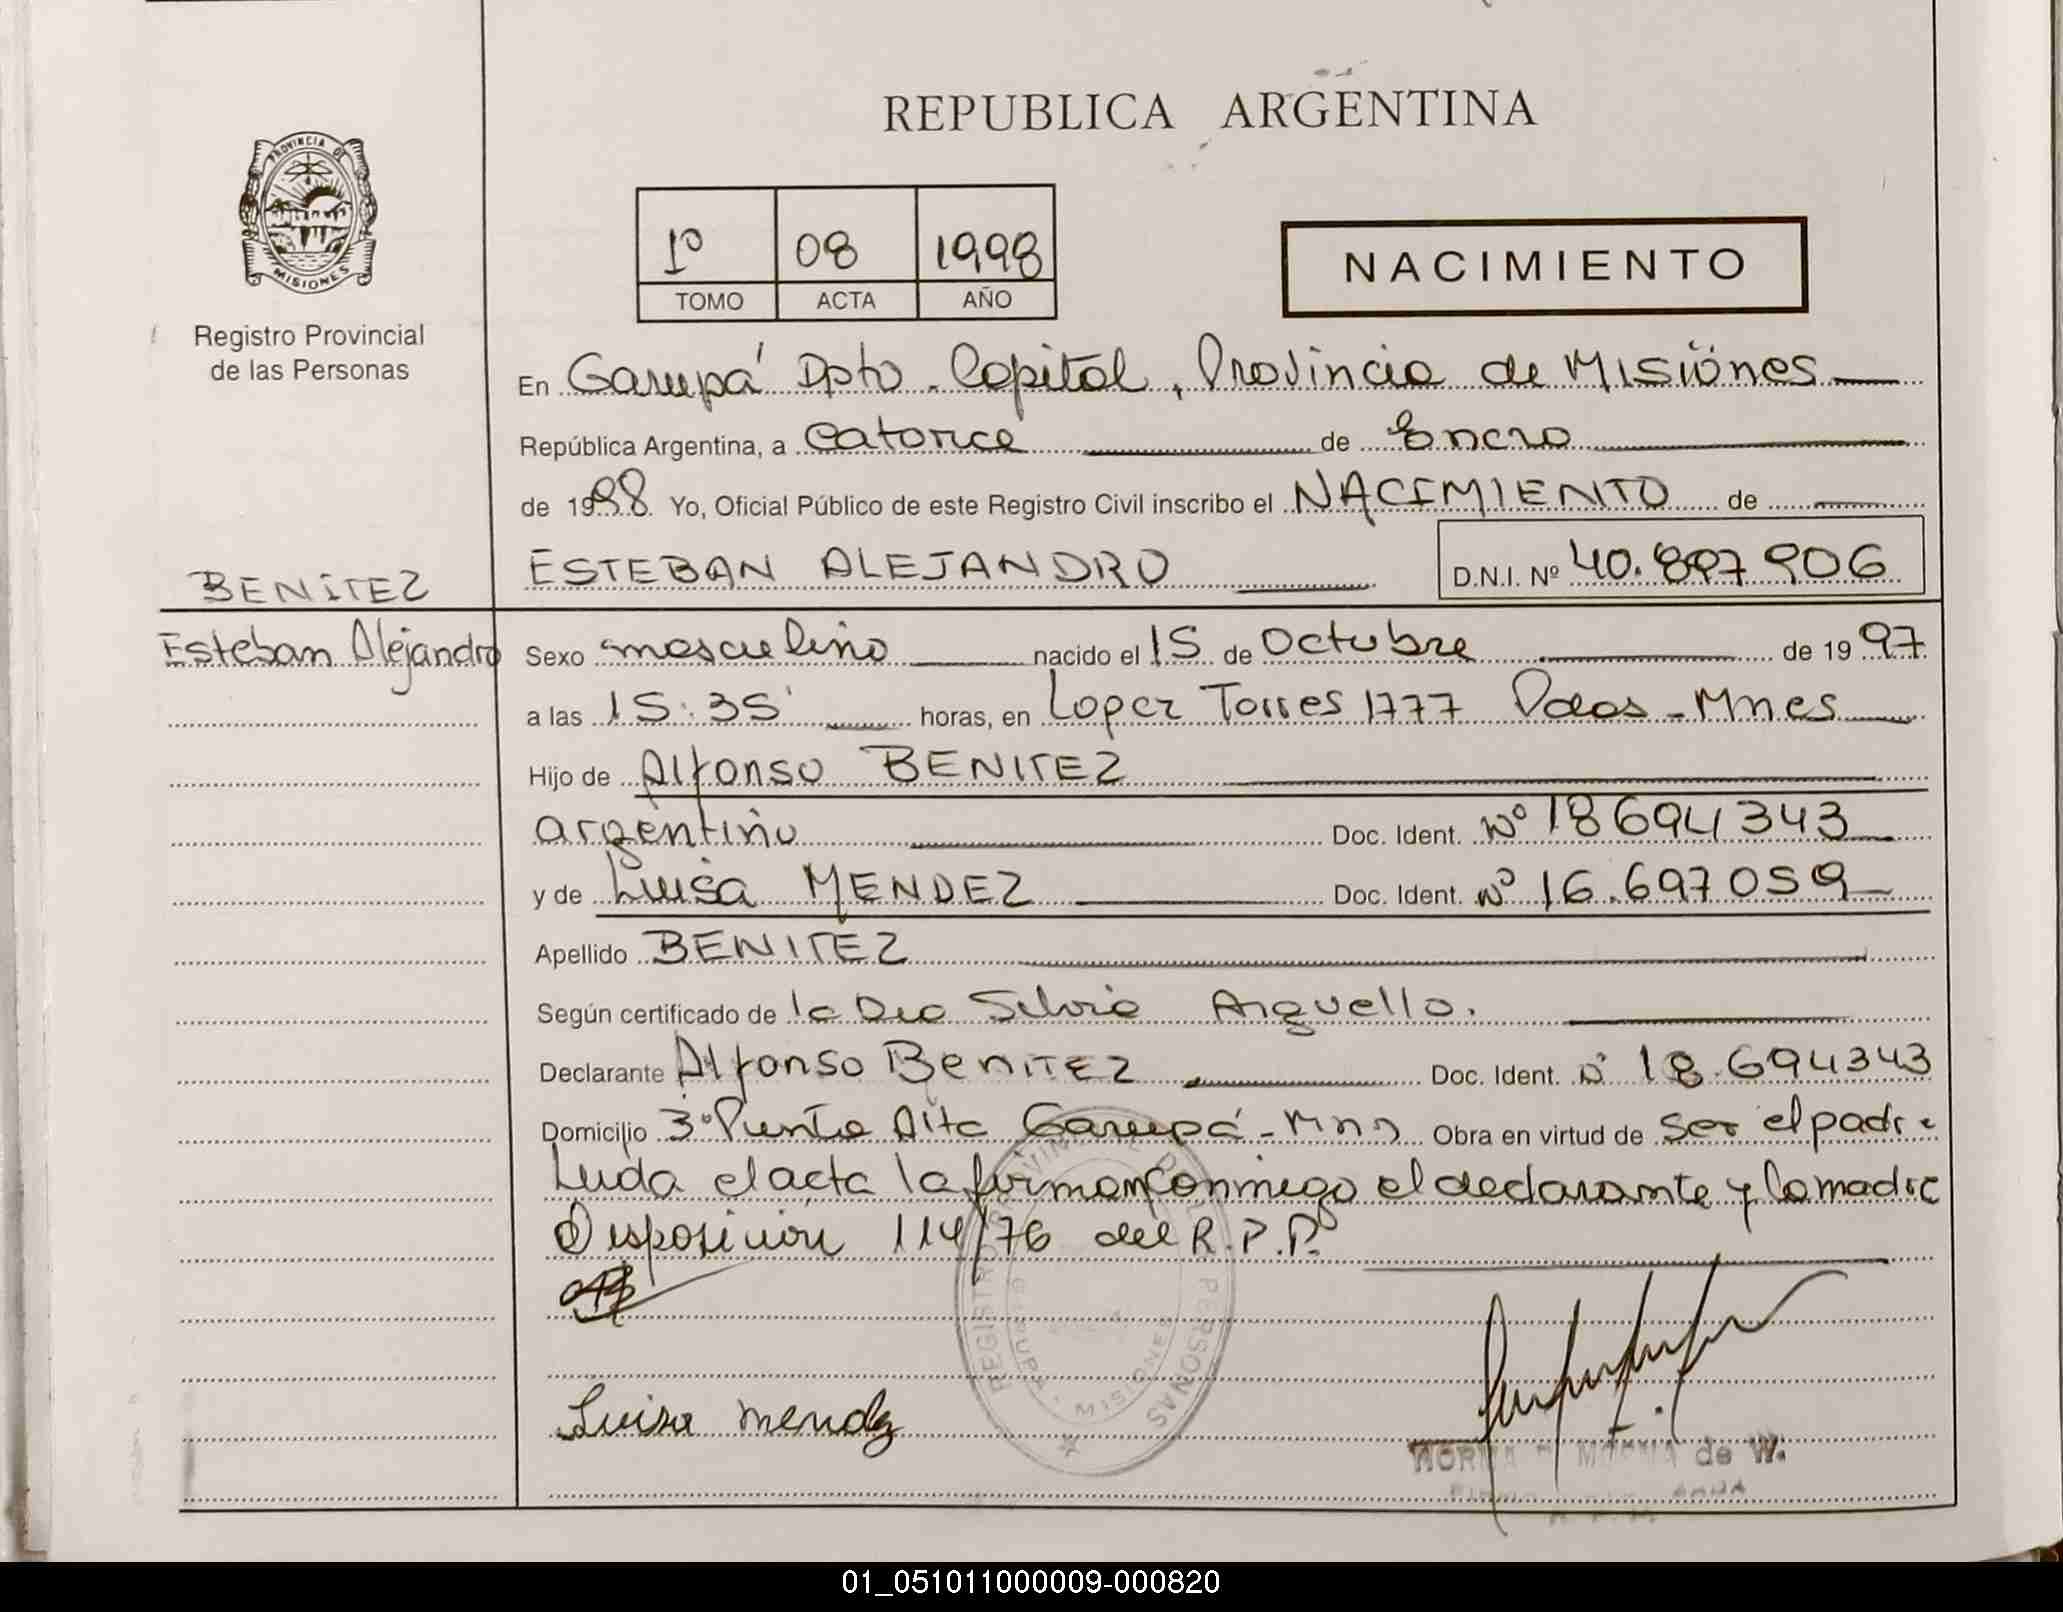 REPUBLICA ARGENTINA
PROVINCIA DE
MISIONES
Registro Provincial
de las Personas
1º 08 1998
TOMO ACTA AÑO
NACIMIENTO
En Garupá Dpto. Capital, Provincia de Misiones
República Argentina, a Catorce de Enero
de 1998. Yo, Oficial Público de este Registro Civil inscribo el NACIMIENTO de
ESTEBAN ALEJANDRO D.N.I. Nº 40.897906
BENITEZ
Esteban Alejandro
Sexo masculino nacido el 15 de Octubre de 1997
a las 15:35 horas, en Lopez Torres 1777 Pdas - Mnes
Hijo de Alfonso BENITEZ
argentino Doc. Ident. Nº 18694343
y de Luisa MENDEZ Doc. Ident. Nº 16.697059
Apellido BENITEZ
Según certificado de la Dra Silvia Arguello.
Declarante Alfonso BENITEZ Doc. Ident. Nº 18.694343
Domicilio 3º Punta Alta Garupá - Mnes Obra en virtud de ser el padre
Leida el acta la firman conmigo el declarante y la madre
Disposicion 114/76 del R.P.P.
REGISTRO PROVINCIAL DE PERSONAS
MISIONES
Luisa mendez
NORMA de W.
01_051011000009-000820